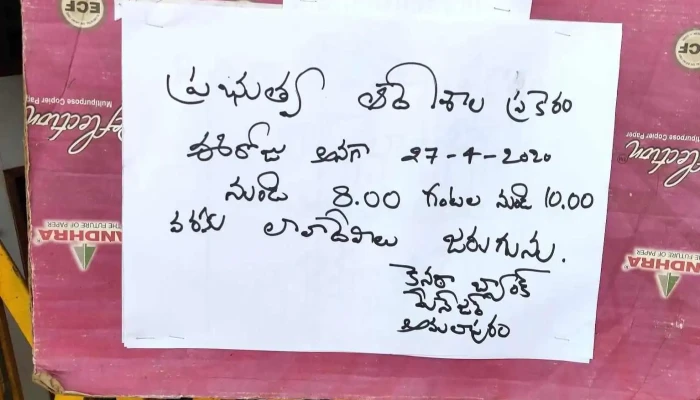 ECF
Reflection
Multipurpose Copier Paper
ANDHRA
THE FUTURE OF PAPER
ప్రభుత్వ ఆదేశాల ప్రకారం
ఈరోజు అనగా 27-4-2020
నుండి 8.00 గంటల నుండి 10.00
వరకు లావాదేవీలు జరుగును.
కెనరా బ్యాంక్
మేనేజర్
అమలాపురం
ECF
flection
Multipurpose Copier Paper
ANDHRA
THE FUTURE OF PAPER